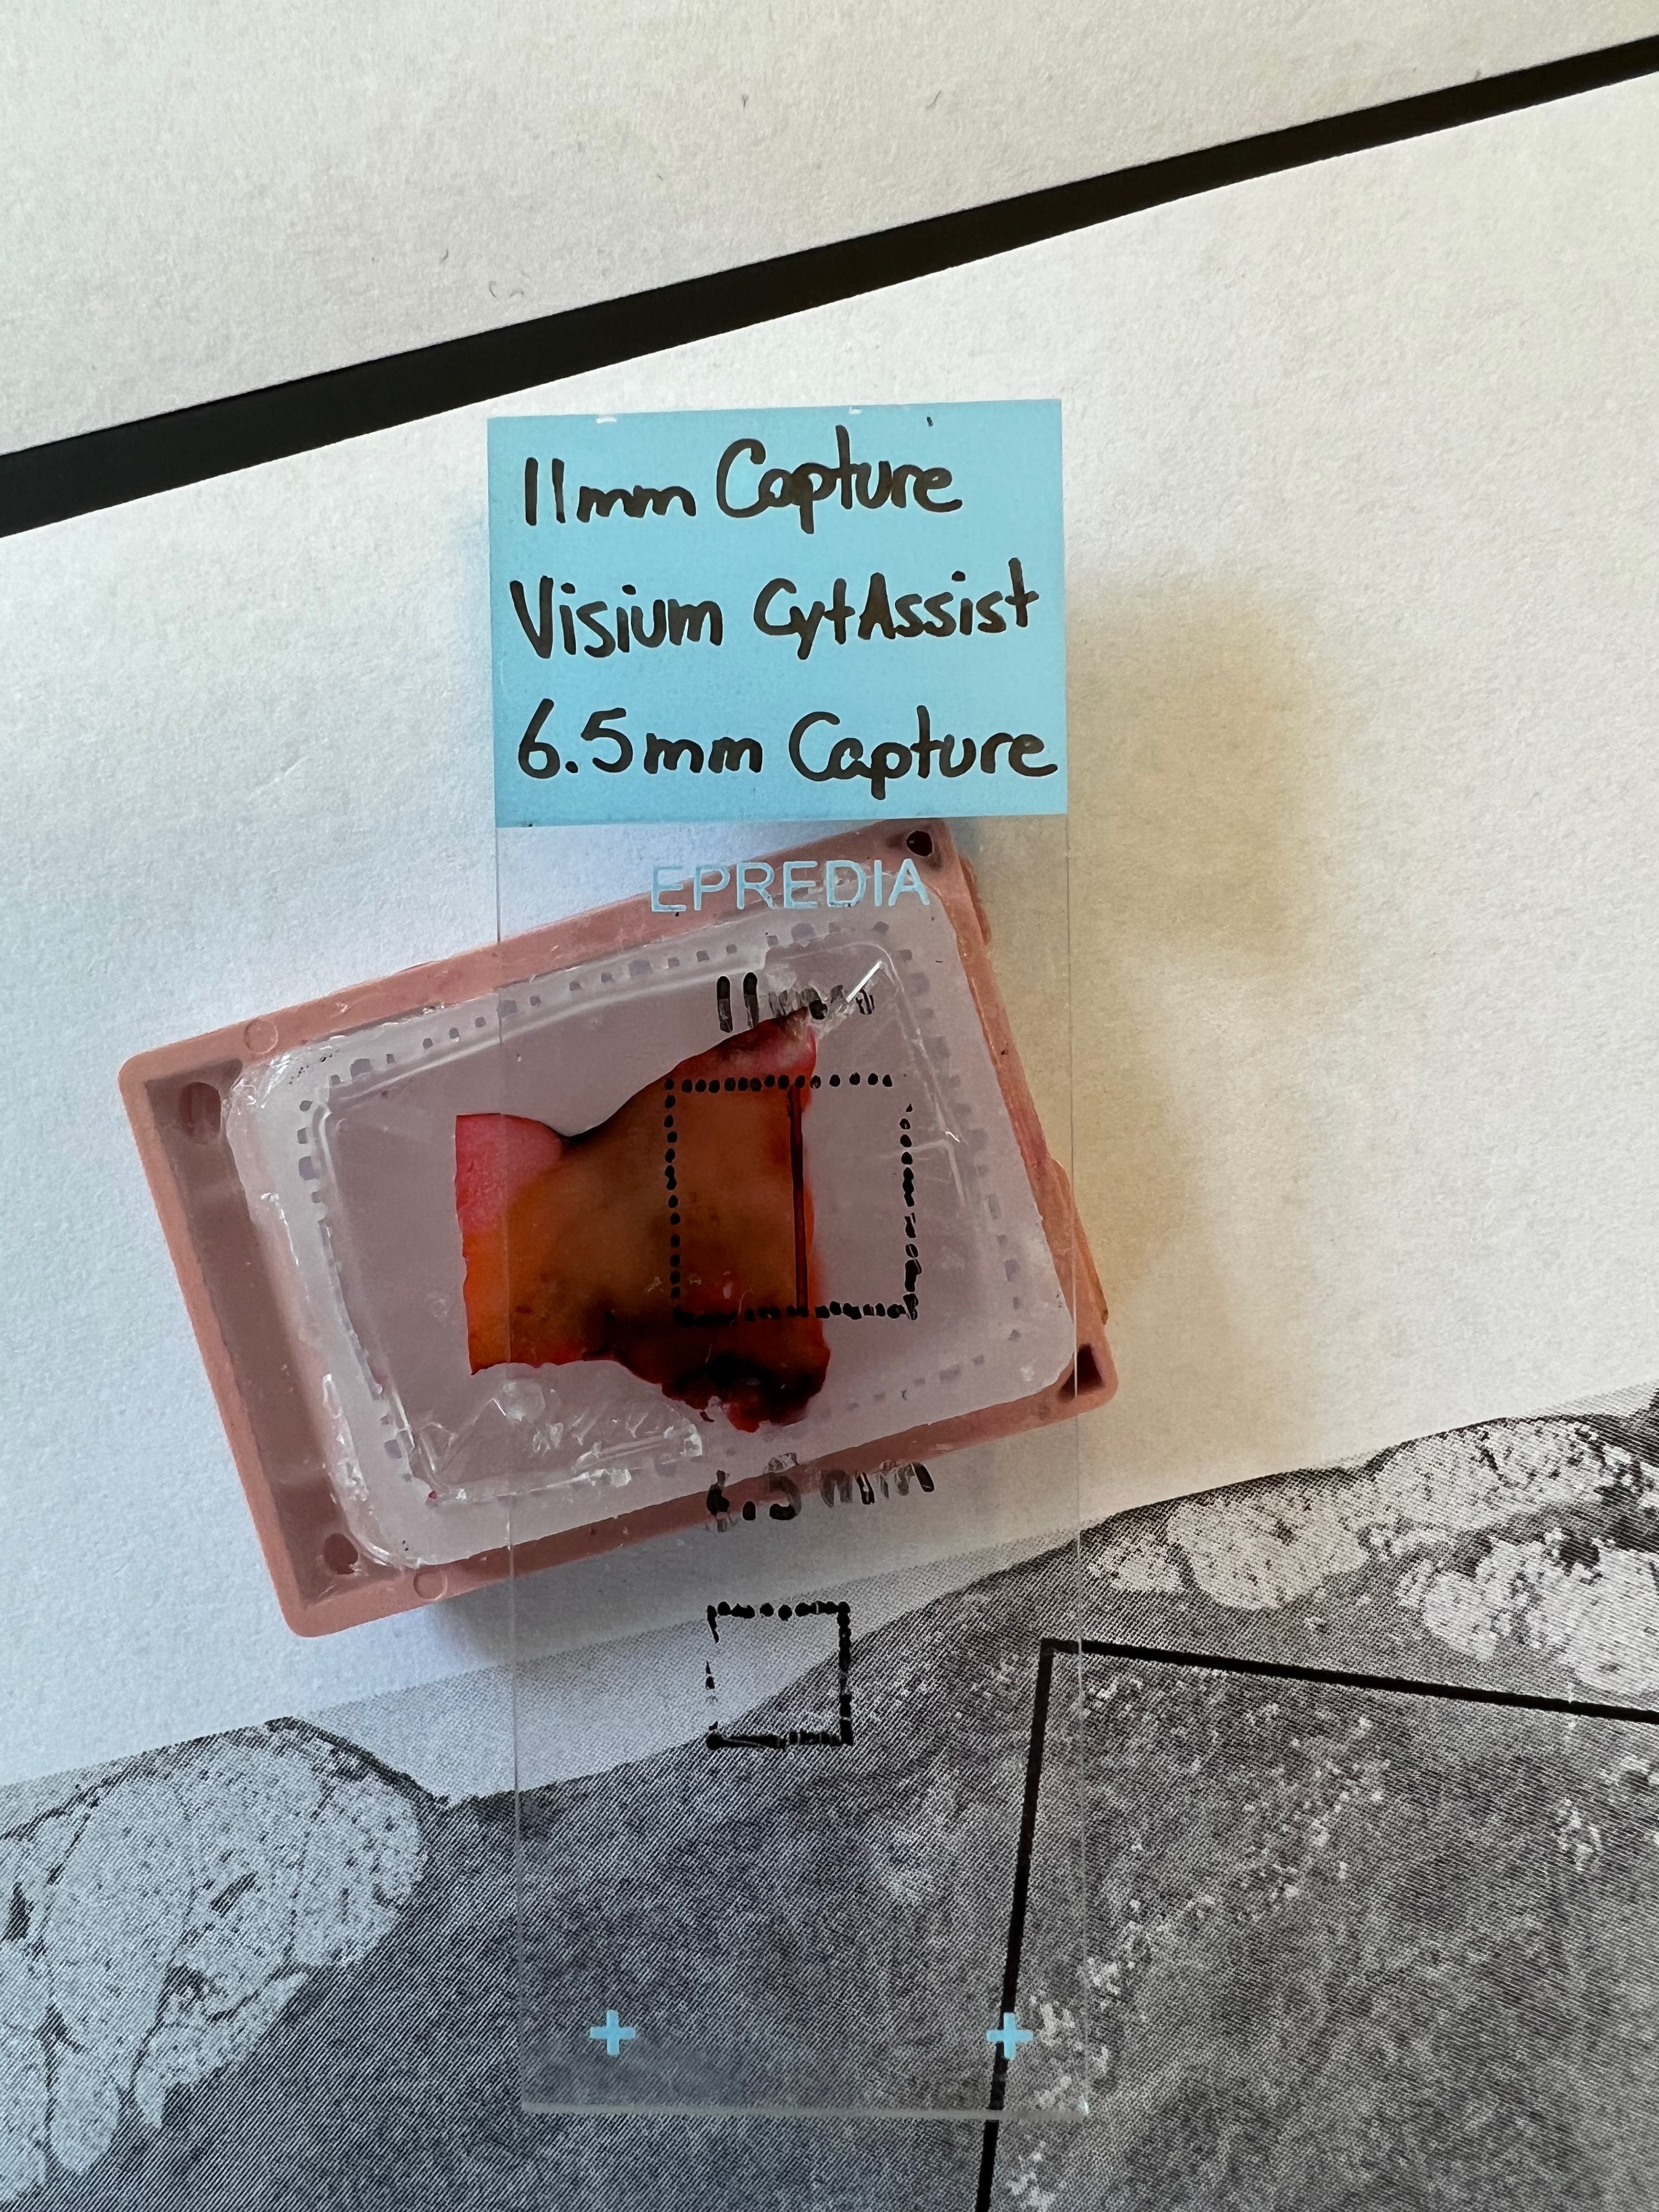 11mm Capture
Visium CytAssist
6.5mm Capture
EPREDIA
11mm
6.5 mm